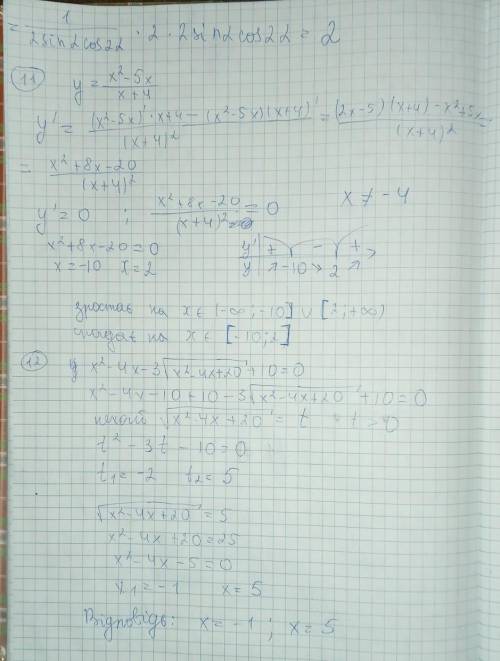 = 1/(2sin2cos22) · 2 · 2sin2cos22 = 2
11
y = (x²-5x)/(x+4)
y' = ((x²-5x)'·x+4 - (x²-5x)(x+4)')/(x+4)² = ((2x-5)(x+4) - x²+5x)/(x+4)² =
= (x²+8x-20)/(x+4)²
y'=0 ; (x²+8x-20)/(x+4)² = 0 x ≠ -4
x²+8x-20=0
x=-10 x=2
y' + - +
y ↗ -10 ↘ 2 ↗
зростає на x∈(-∞;-10] ∪ [2;+∞)
спадає на x∈[-10;2]
12
x²-4x-3√(x²-4x+20)+10=0
x²-4x-10+10-3√(x²-4x+20)+10=0
нехай √(x²-4x+20) = t t>0
t²-3t-10=0
t₁=-2 t₂=5
√(x²-4x+20)=5
x²-4x+20=25
x²-4x-5=0
x₁=-1 x=5
Відповідь: x=-1; x=5